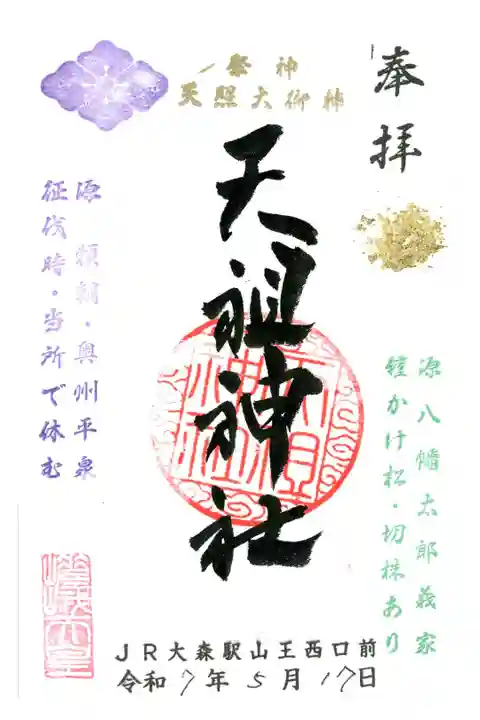 奉拝
祭神
天照大御神
天祖神社
源八幡太郎義家
鎧かけ松・切株あり
源 頼朝・奥州平泉
征伐時・当所で休む
JR大森駅山王西口前
令和7年5月17日